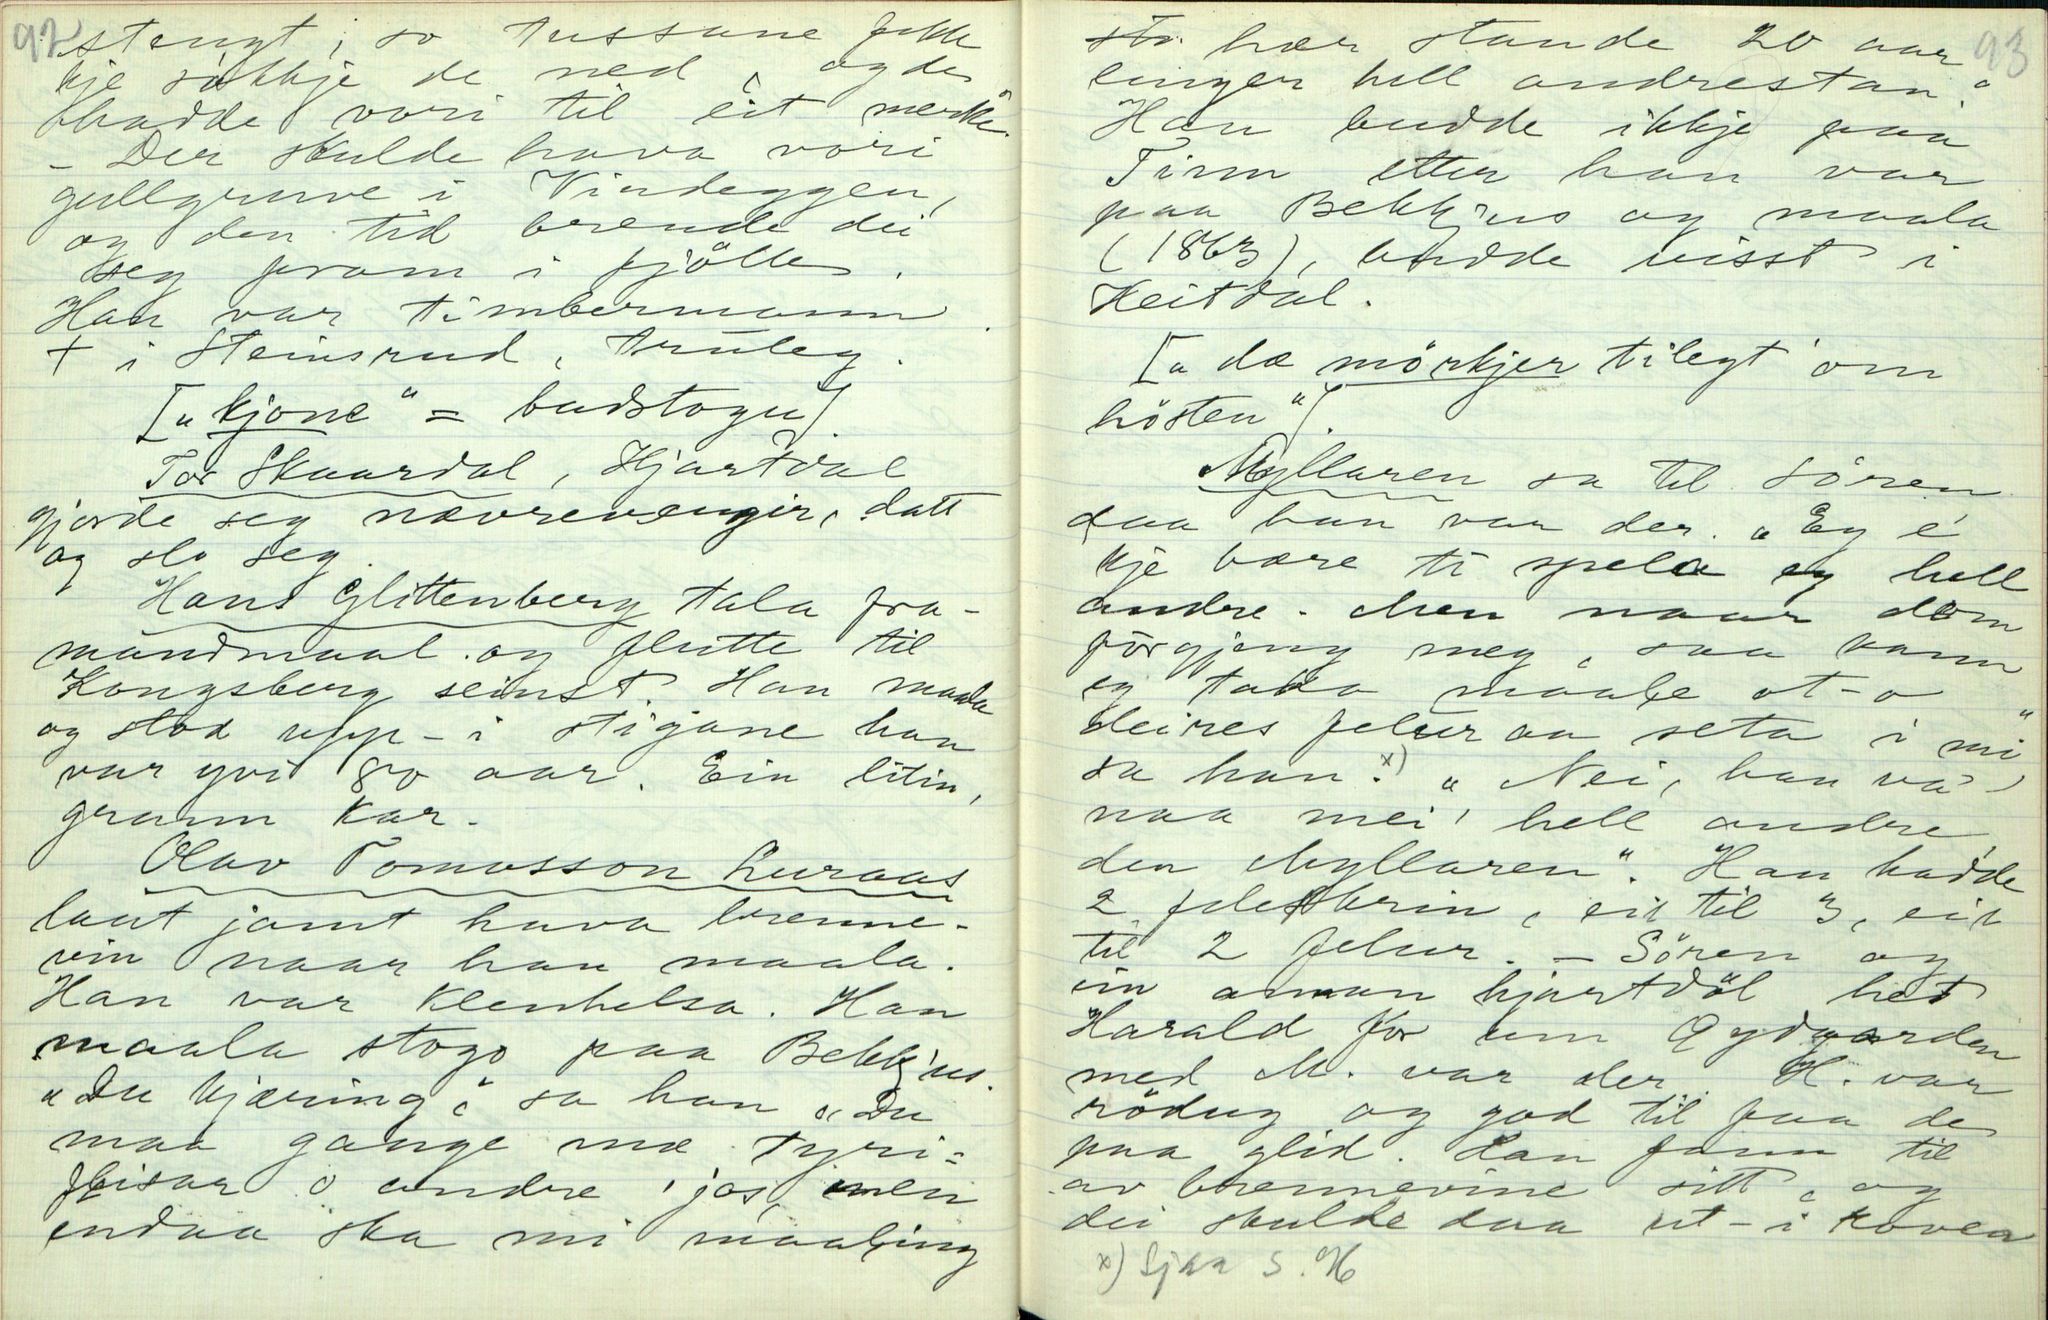 92
stengt, so tussane fekk
kje søkkje de ned, og de
hadde vori til eit merke.
- Der skulde hava vori
gullgruve i Vindeggen,
og den tid brende dei
seg fram i fjølle.
Han var timbermann.
+ i Steinsrud, truleg.
[„kjone" = badstogu].
Tor Skaardal, Hjartdal
gjorde seg nævrevengir, datt
og slo seg.
Hans Glittenberg tala fra-
mandmaal og flutte til
Kongsberg seinst. Han maala
og stod upp-i stigane han
var yvi 80 aar. Ein liten,
grann kar.
Olav Tomasson Luraas
laut jamt hava brenne-
vin naar han maala.
Han var klenhelsa. Han
maala stogo paa Bekkhus.
„Du kjæring," sa han, „Du
maa gange mæ tyri-
flisar o andre ljos, men
endaa ska mi maaling
93
sto her stande 20 aar
lenger hell andrestan."
Han budde ikkje paa
Tinn etter han var
paa Bekkhus og maala
(1863), budde visst i
Heitdal.
[„dæ mørkjer tilegt om
høsten"].
Myllaren sa til Søren,
daa han var der. „Eg é
kje bære ti spela eg hell
andre. Men naar dom
forgjeng meg, saa kann
eg taka maale ot-o
deires felur aa seta i mi"
sa han. x) „Nei, han va
naa mei' hell andre,
den Myllaren". Han hadde
2 feleskrin, eit til 3, eit
til 2 felur. - Søren og
ein annan hjartdøl het
Harald for um Øygarden
med M. var der. H. var
rødug og god til faa de
paa glid. Han fann til
av brennevine sitt, og
dei skulde daa ut-i koven
x) Sjaa S. 96